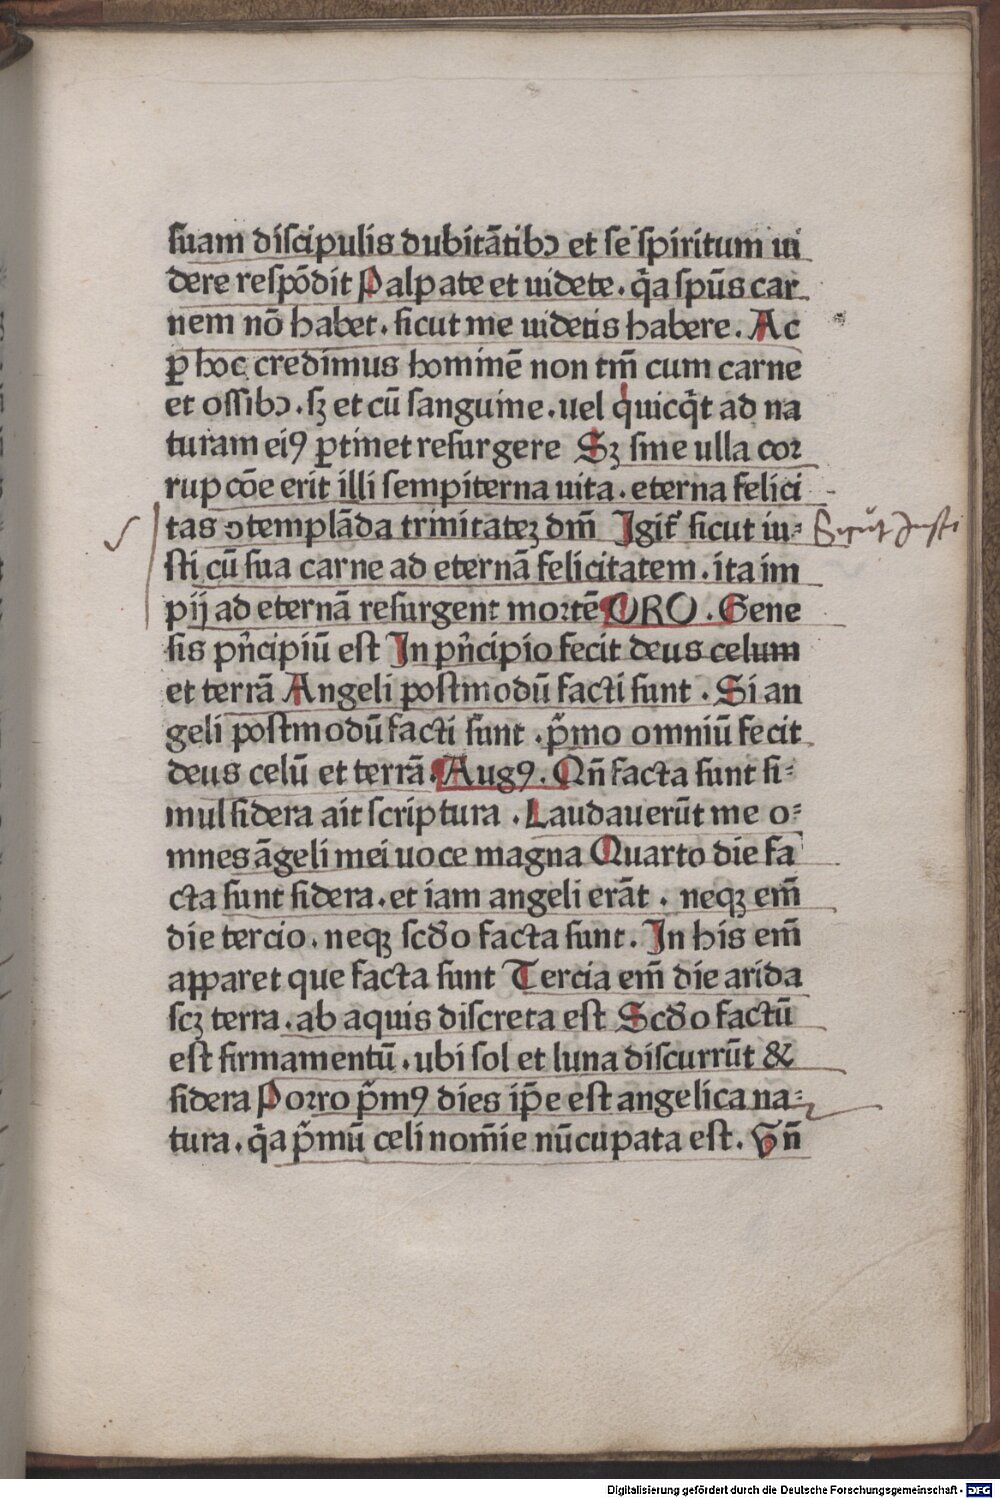 suam discipulis dubitātibɔ et se spiritum ui
dere respōdit Palpate et uidete. q̄a spūs car
nem nō habet. sicut me uidetis habere. Ac
ꝑ hoc credimus hominē non tm̄ cum carne
et ossibɔ. sꝫ et cū sanguine. uel quicq̄t ad na
turam eiꝯ ꝑtinet resurgere Sꝫ sine ulla cor
rupcōe erit illi sempiterna uita. eterna felici
tas ɔtemplāda trinitateꝫ dm̄ Igit᷑ sicut iu⸗ Sicut Justi
sti cū sua carne ad eternā felicitatem. ita im
pij ad eternā resurgent mortē ORO. Gene
sis pn̄cipiū est In pn̄cipio fecit deus celum
et terrā Angeli postmodū facti sunt. Si an
geli postmodū facti sunt. p̄mo omniū fecit
deus celū et terrā. Augꝯ. Qn̄ facta sunt si⸗
mul sidera ait scriptura. Laudauerūt me o⸗
mnes āgeli mei uoce magna Quarto die fa
cta sunt sidera. et iam angeli erāt. neqꝫ em̄
die tercio. neqꝫ scd̄o facta sunt. In his em̄
apparet que facta sunt Tercia em̄ die arida
scꝫ terra. ab aquis discreta est Scd̄o factū
est firmamentū. ubi sol et luna discurrūt &
sidera Porro p̄mꝯ dies ip̄e est angelica na⸗
tura. q̄a p̄mū celi nom̄ie nūcupata est. Vn̄
Digitalisierung gefördert durch die Deutsche Forschungsgemeinschaft - DFG